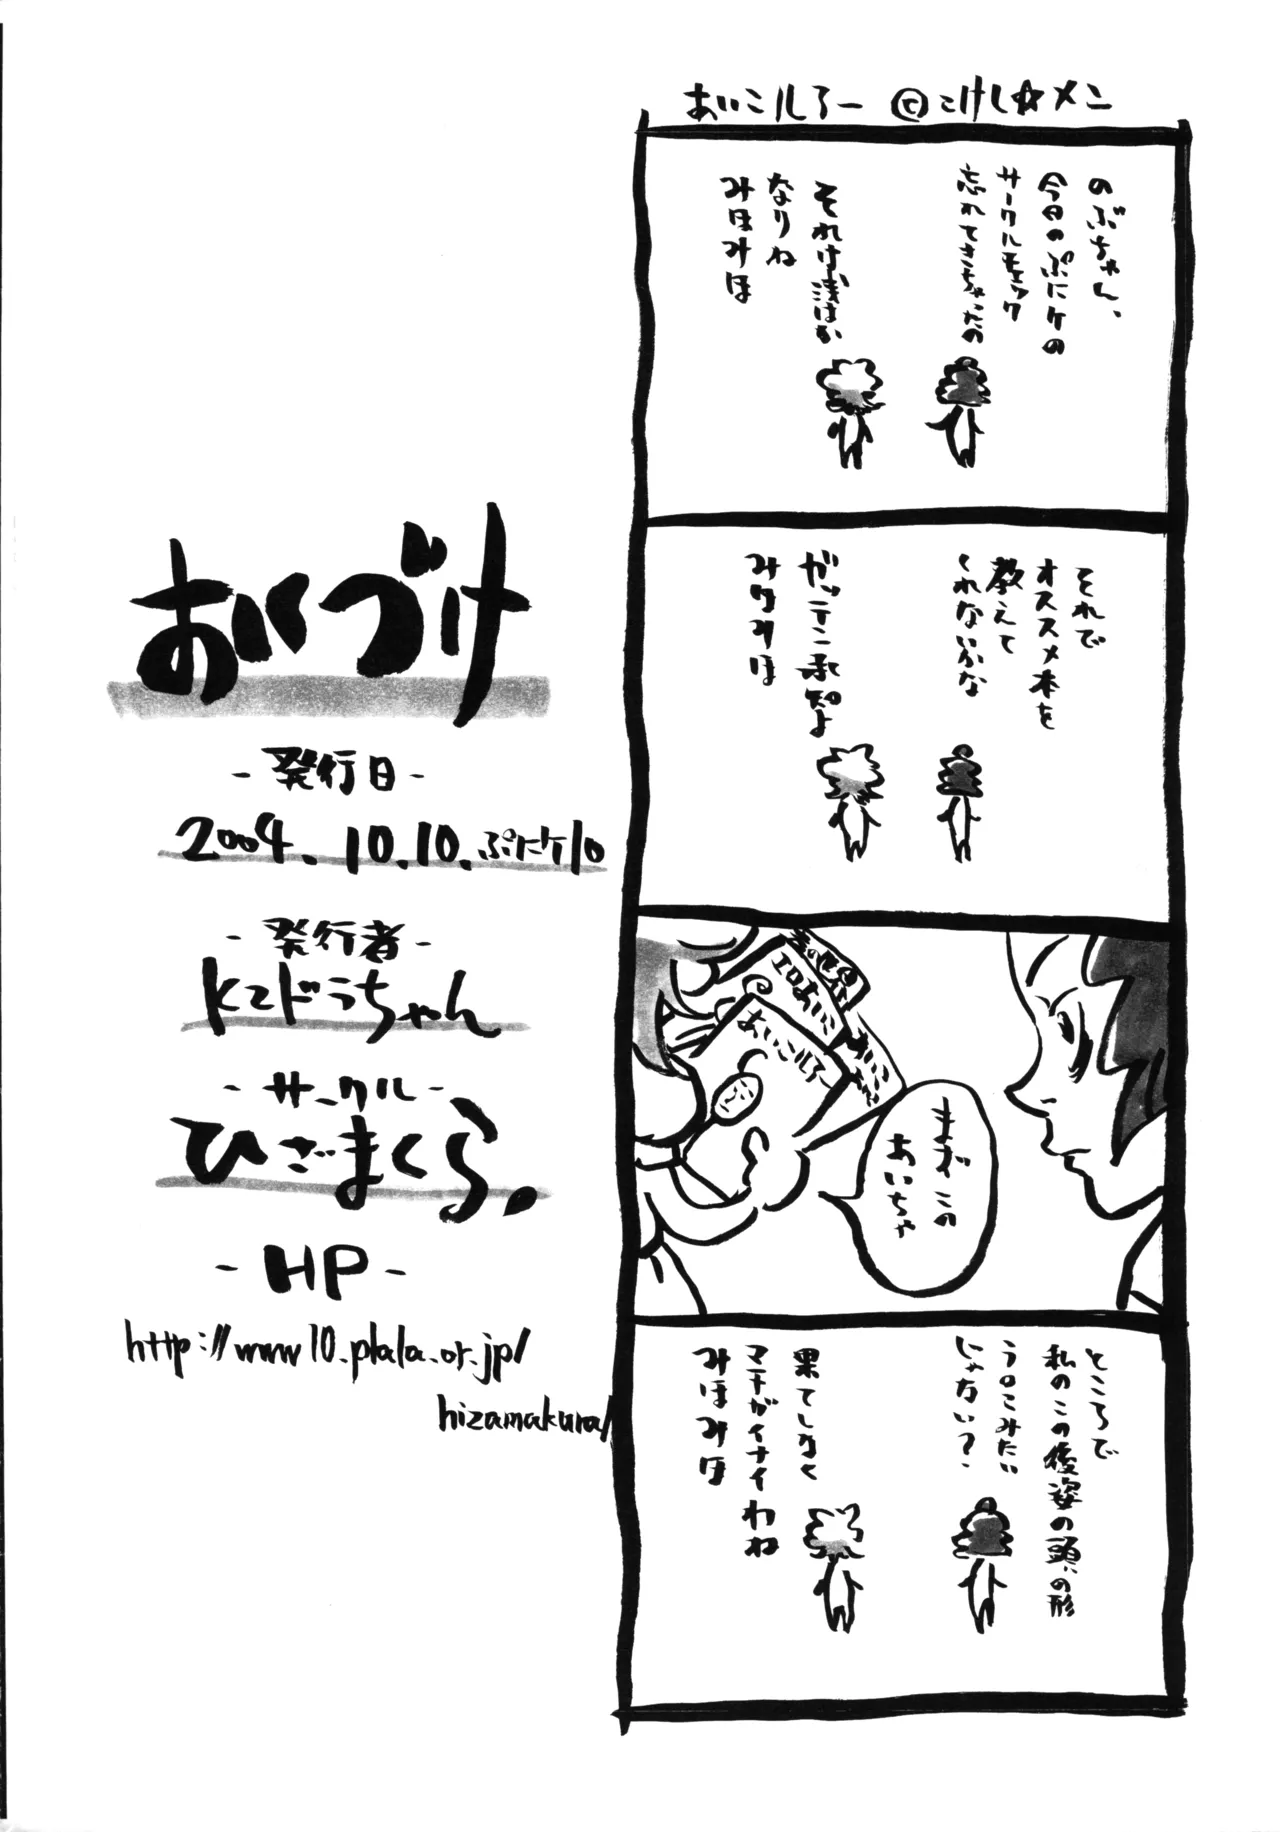 あいこルろー ©こけし☆メン
のぶちゃん、
今日のぷにケの
サークルチェック
忘れてきちゃったの
それは浅はか
なりね
みほみほ
それで
オススメ本を
教えて
くれないかな
ガッテン承知よ
みほみほ
エロあいこ
あいこルろー
まずこの
あいちゃ
ところで
私のこの後姿の頭の形
う○こみたい
じゃない?
果てしなく
マチガイナイわね
みほみほ
あいづけ
- 発行日 -
2004.10.10.ぷにケ10
- 発行者 -
K2ドラちゃん
- サークル -
ひざまくら。
- HP -
http://www10.plala.or.jp/
hizamakura/